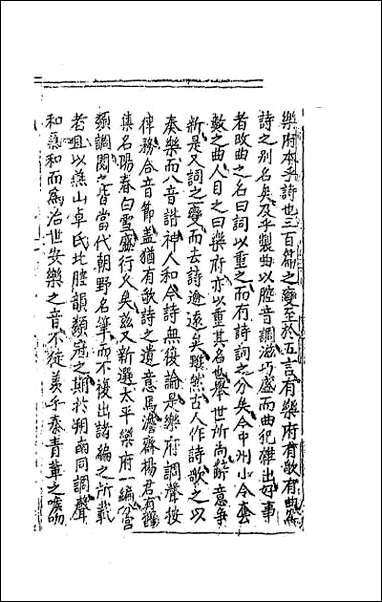 樂府本乎詩也三百篇之變至於五言有樂府有歌有曲為
詩之别名矣及乎製曲以腔音調滋巧盛而曲犯雜出好事
者改曲之名曰詞以重之而有詩詞之分矣今中州小令套
數之曲人目之曰樂府亦以重其名也舉世所尚辭意争
新是又詞之變而去詩逾遠矣雖然古人作詩歌之以
奏樂而八音諧神人和今詩無復論是樂府調聲按
律務合音節盖猶有歌詩之遺意焉澹齋楊君有選
集名陽春白雪盛行久矣兹又新選太平樂府一編分宫
類調閱之皆當代朝野名筆而不復出諸編之所載
者且以燕山卓氏北腔韻類冠之期於朔南同調聲
和氣和而為治世安樂之音不徒羨乎秦青軰之嚎吻